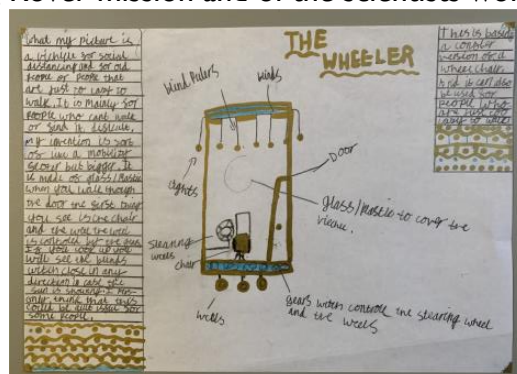 THE
WHEELER
What my picture is
a vichicle for social
distancing and for old
people or people that
are just to lazy to
walk. It is mainly for
people who cant walk
or find it
my invention is sort
of like a mobility
but bigger. It
is made of glass/Plastic
when you walk though
the door the first thing
you see is one chair
and the
is controled by the
If you look up you
will see the blinds
witch close in any
direction in case the
sun is
only think that this
could be
some people.
This is basic
a cooler
version of a
wheel chair.
And it can also
be used for
people who
are just too
lazy to walk
blind
blinds
lights
Door
glass/plastic to cover the
stearing
wheel
chair
wheels
Gears witch controle the stearing wheel
and the weels